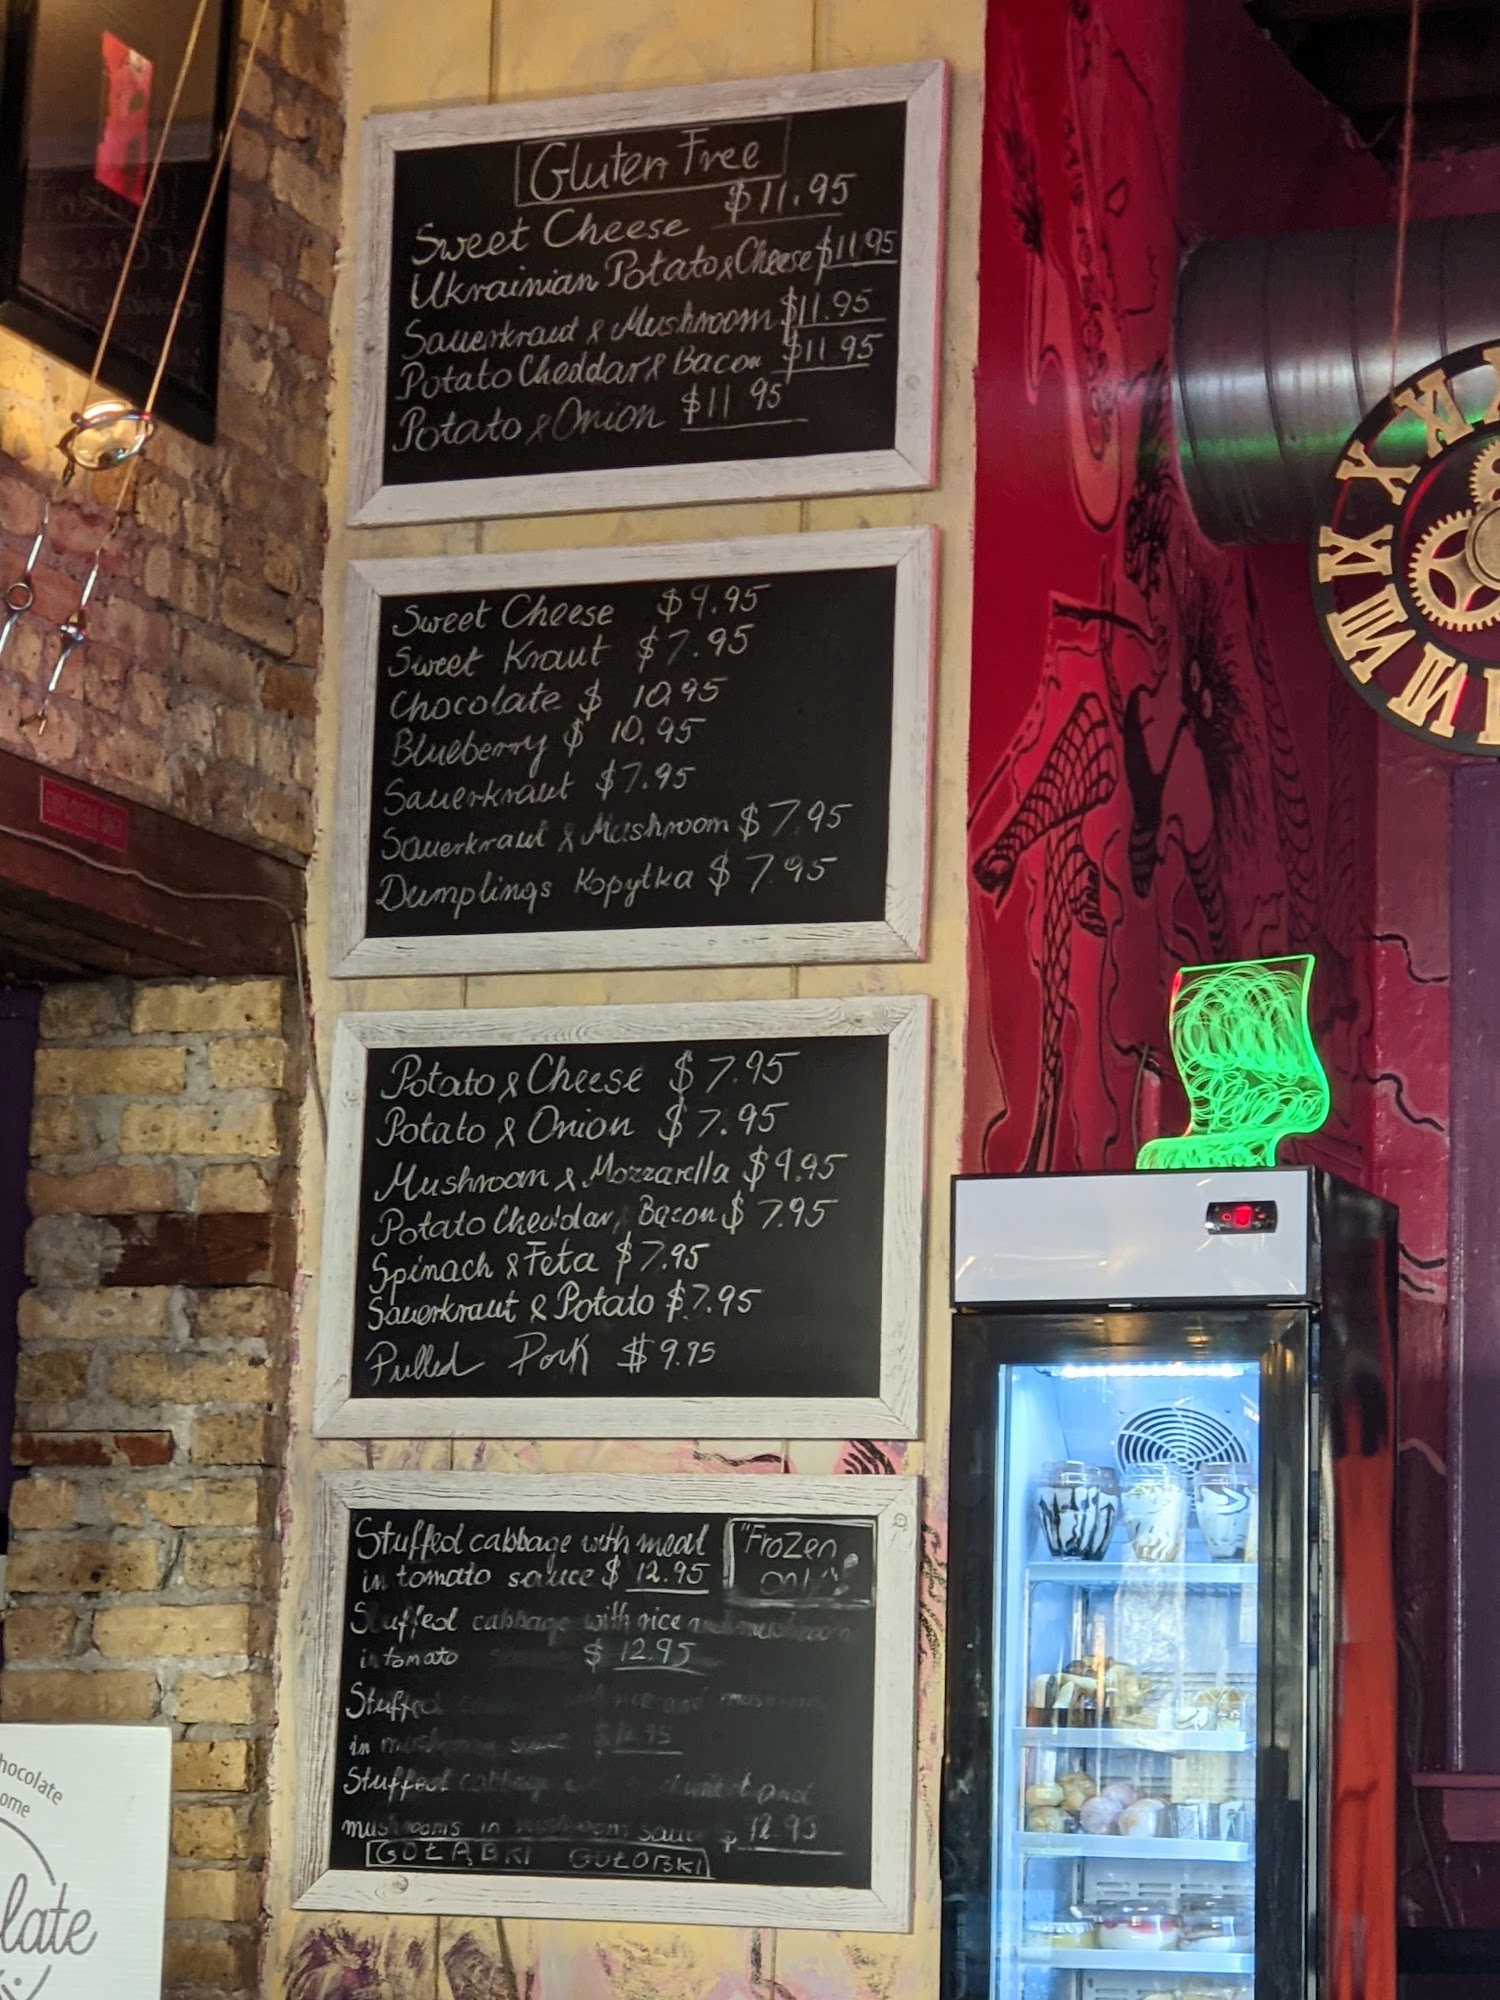 Gluten Free
Sweet Cheese $11.95
Ukrainian Potato & Cheese $11.95
Sauerkraut & Mushroom $11.95
Potato Cheddar & Bacon $11.95
Potato & Onion $11.95
Sweet Cheese $9.95
Sweet Kraut $7.95
Chocolate $ 10.95
Blueberry $ 10.95
Sauerkraut $7.95
Sauerkraut & Mushroom $7.95
Dumplings Kopytka $7.95
Potato & Cheese $7.95
Potato & Onion $7.95
Mushroom & Mozzarella $9.95
Potato Cheddar, Bacon $7.95
Spinach & Feta $7.95
Sauerkraut & Potato $7.95
Pulled Pork $9.95
Stuffed cabbage with meat
in tomato sauce $ 12.95
"Frozen
only"
Stuffed cabbage with rice and mushroom
in tomato $ 12.95
Stuffed rice and
in mushroom
Stuffed cabbage and
mushrooms in mushroom sauce 12.95
GOŁĄBKI GOŁOBKI
EMPLOYEES ONLY
chocolate
ome
late
X
XI